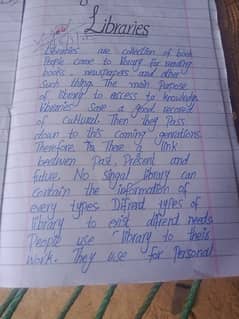 Libraries
Libraries are collection of book
People came to library for reading
books, newspapers and other
Such thing. The main Purpose
of library to access to knowledge
libraries Save a good record
of cultural. Then they Pass
down to this coming genrations
Therefore, There is link
bestween Past, Present and
future. No singal library can
Contain the information of
every types Difrent types of
library to exist difrend needs
People use library to their
work. They use for Personal